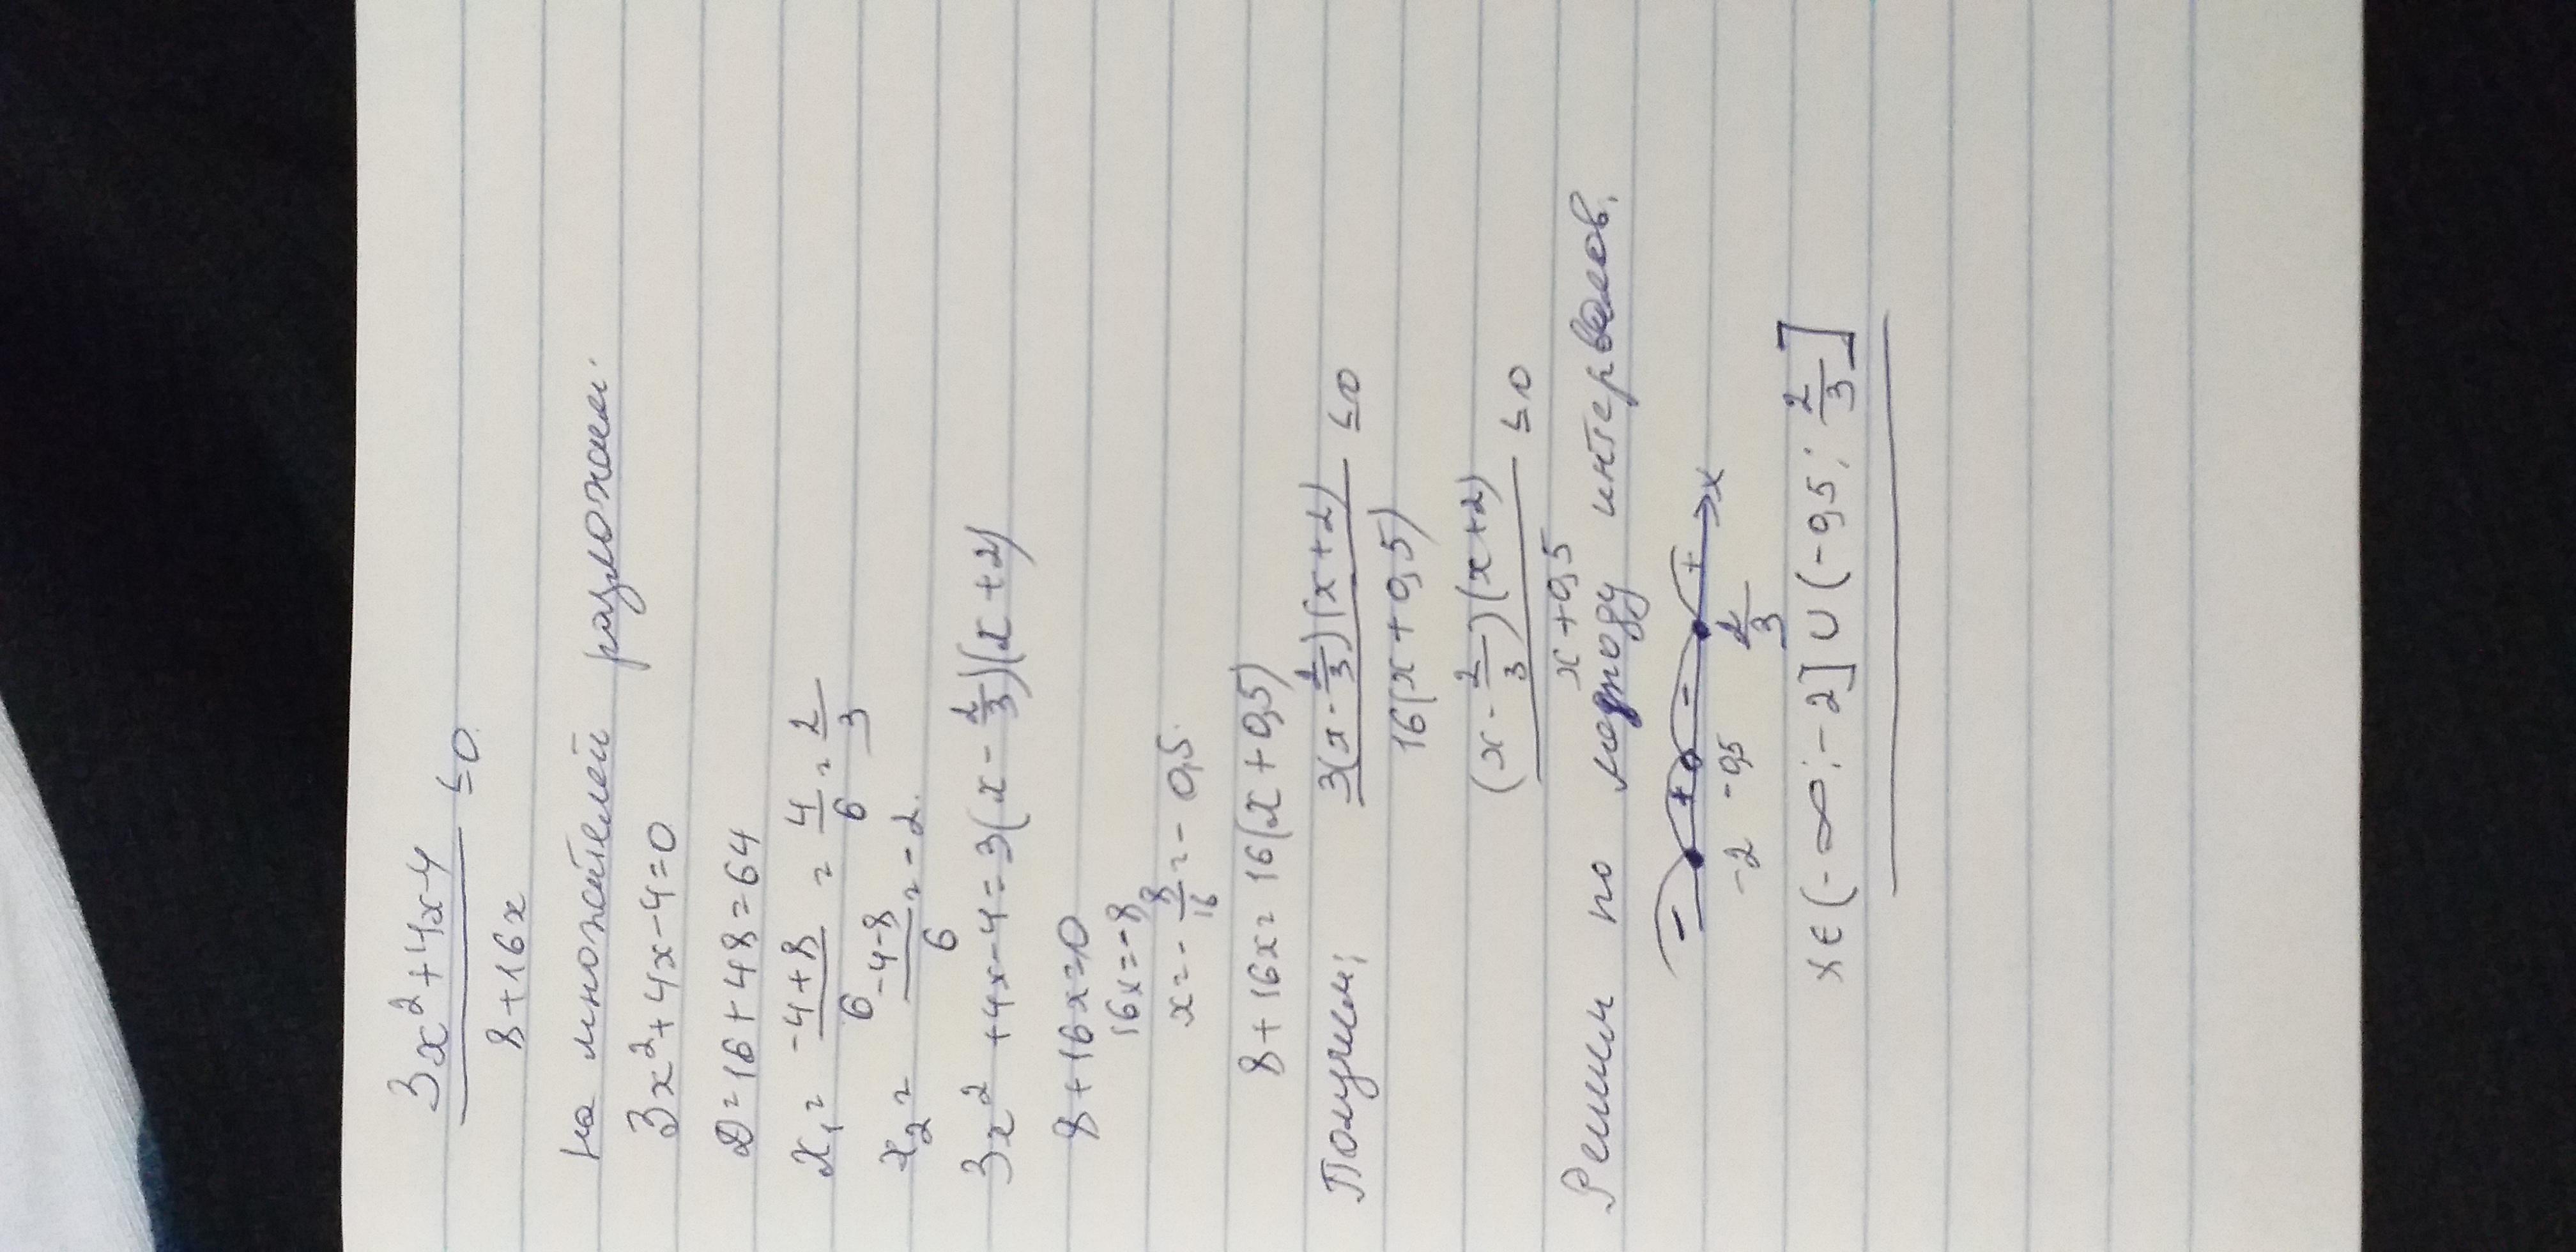 3x²+4x-4
8+16x ≤0
на множителей разложим.
3x²+4x-4=0
D=16+48=64
x₁= -4+8/6 = 4/6 = 2/3
x₂= -4-8/6 = -2
3x²+4x-4=3(x-2/3)(x+2)
8+16x=0
16x=-8
x=-8/16=-0,5
8+16x=16(x+0,5)
Получим, 3(x-2/3)(x+2)/16(x+0,5) ≤0
(x-2/3)(x+2)/x+0,5 ≤0
Решим по методу интервалов,
- + - + x
-2 -0,5 2/3
x∈(-∞;-2]∪(-0,5; 2/3]